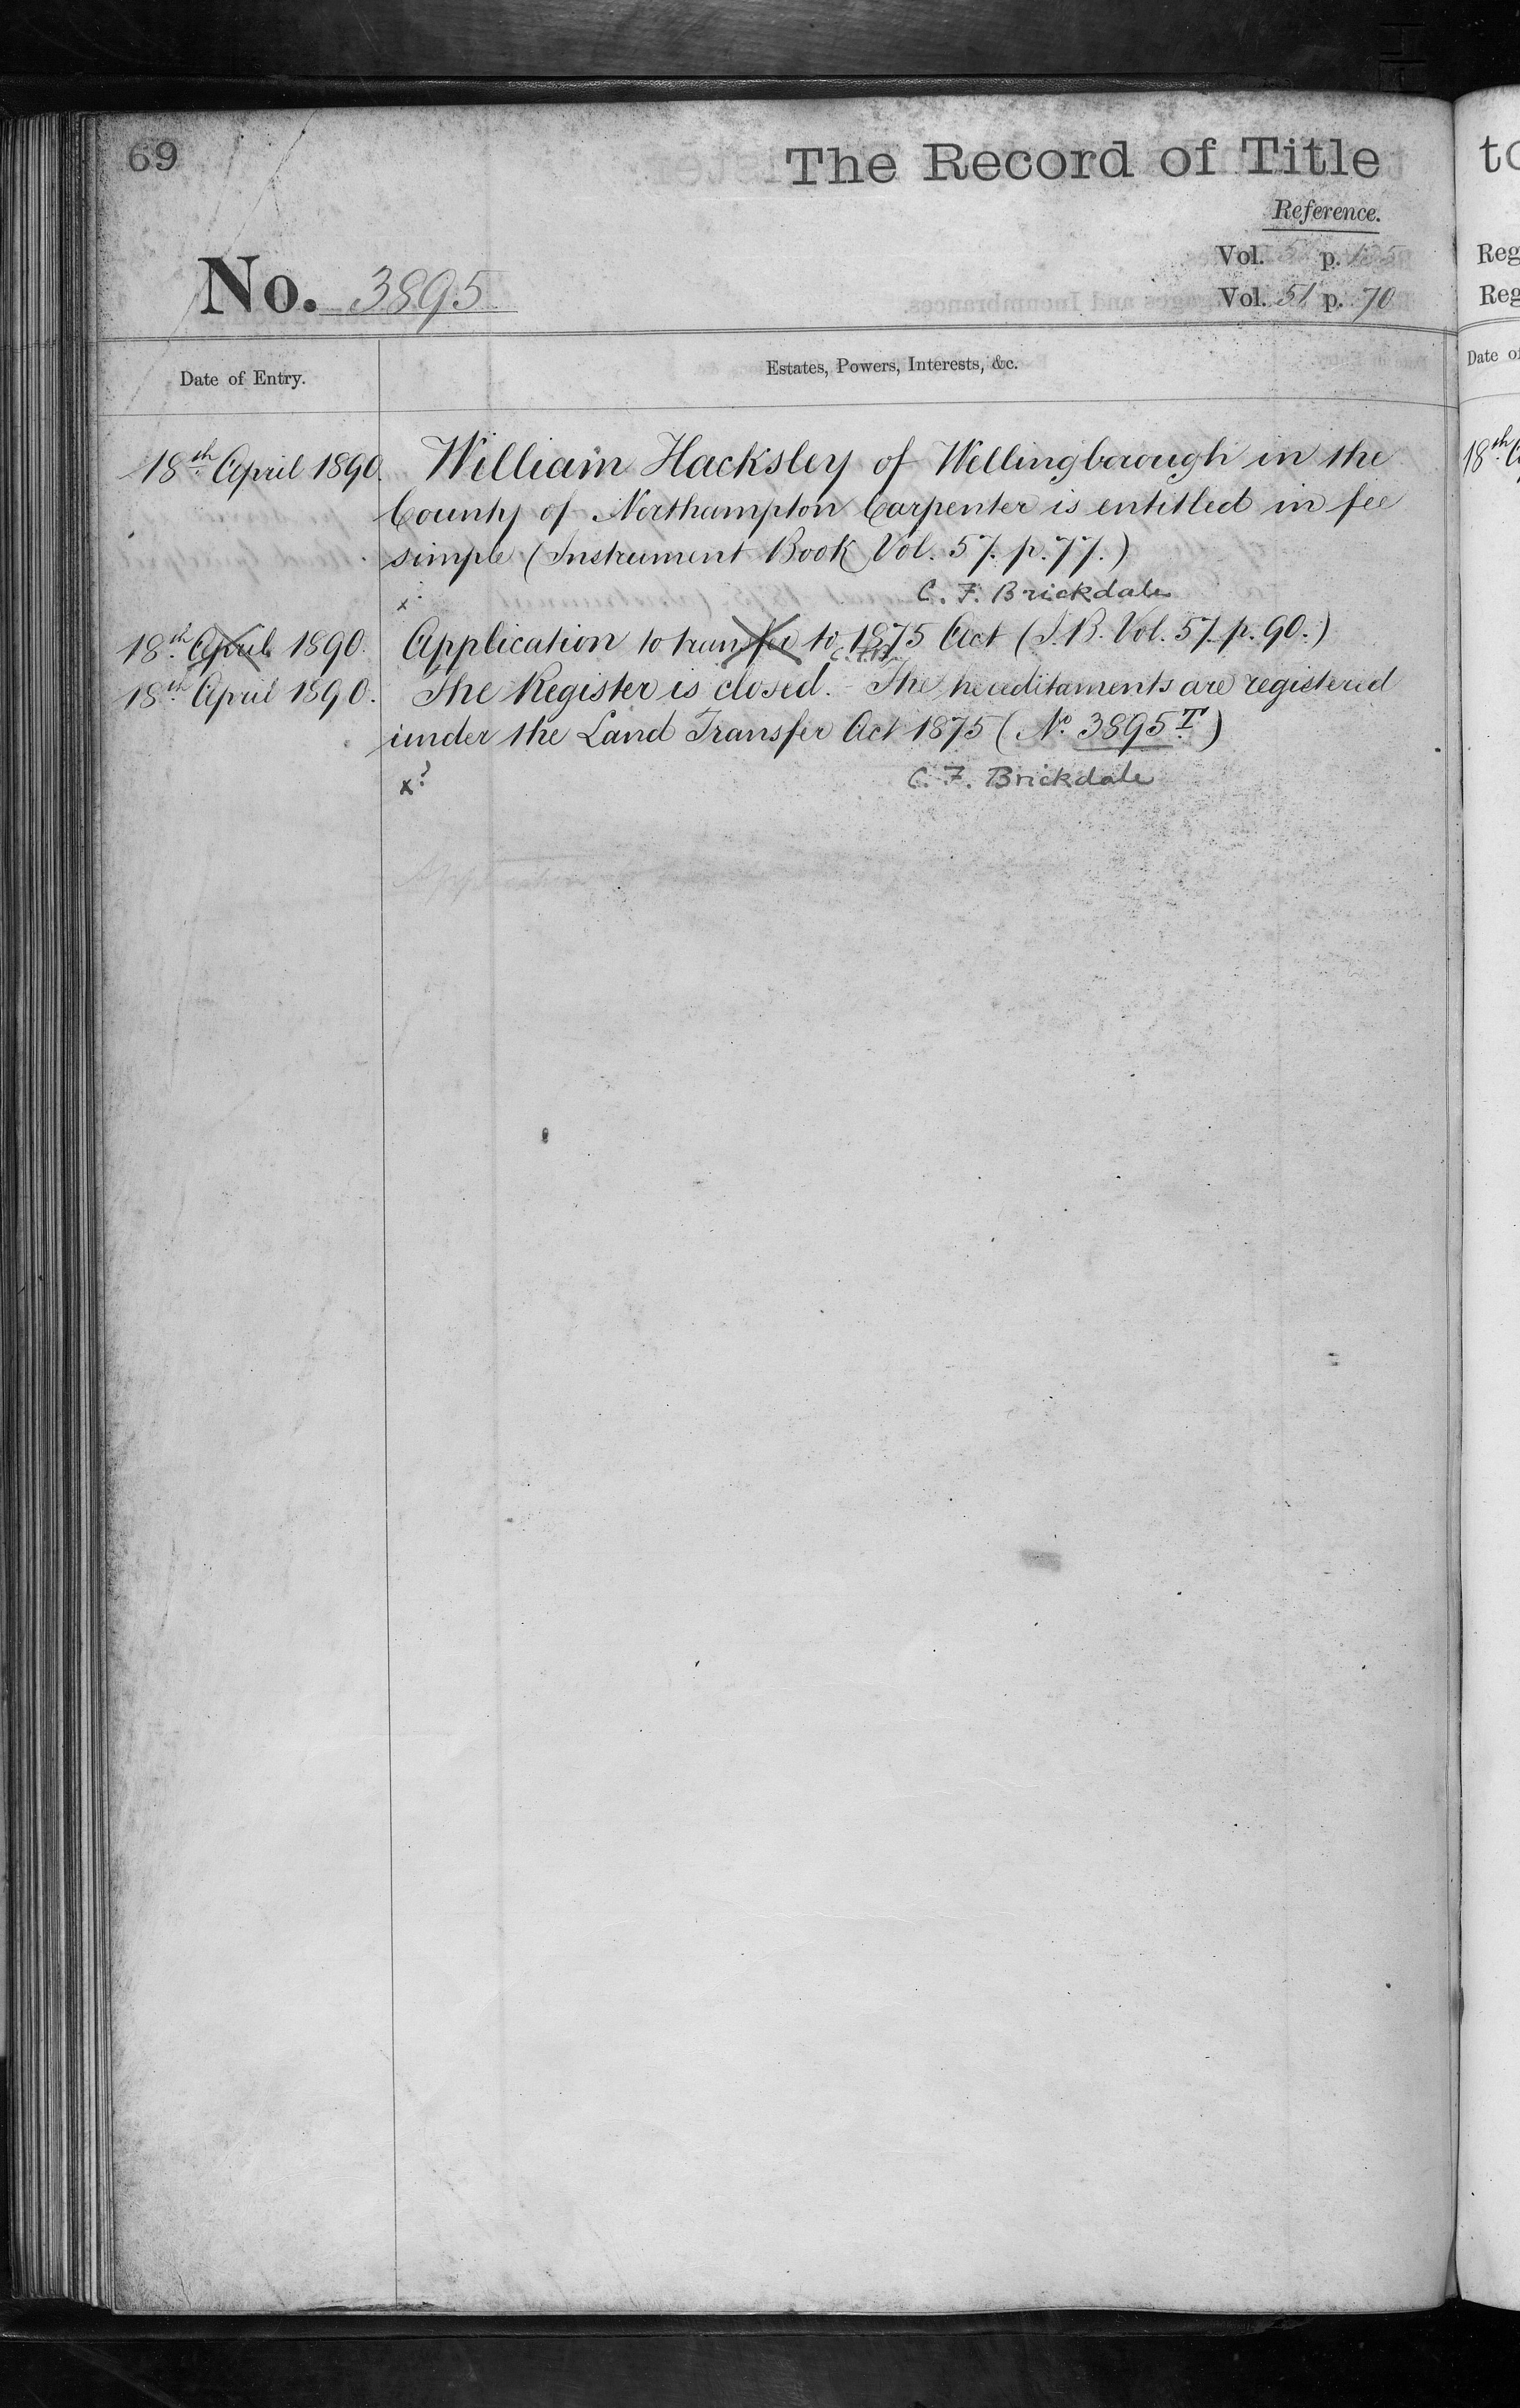 69
The Record of Title
Reference.
Vol. p.
No. 3895
Vol. 51 p. 70
Date of Entry.
Estates, Powers, Interests, &c.
18th April 1890. William Hacksley of Wellingborough in the
County of Northampton Carpenter is entitled in fee
simple (Instrument Book Vol. 57. p. 77.)
x C. F. Brickdale
18th April 1890. Application to transfer to 1875 Act (I.B. Vol. 57. p. 90.)
18th April 1890. The Register is closed. - The hereditaments are registered
under the Land Transfer Act 1875 (No. 3895T.)
x? C. F. Brickdale
to
Reg
Reg
Date of
18th